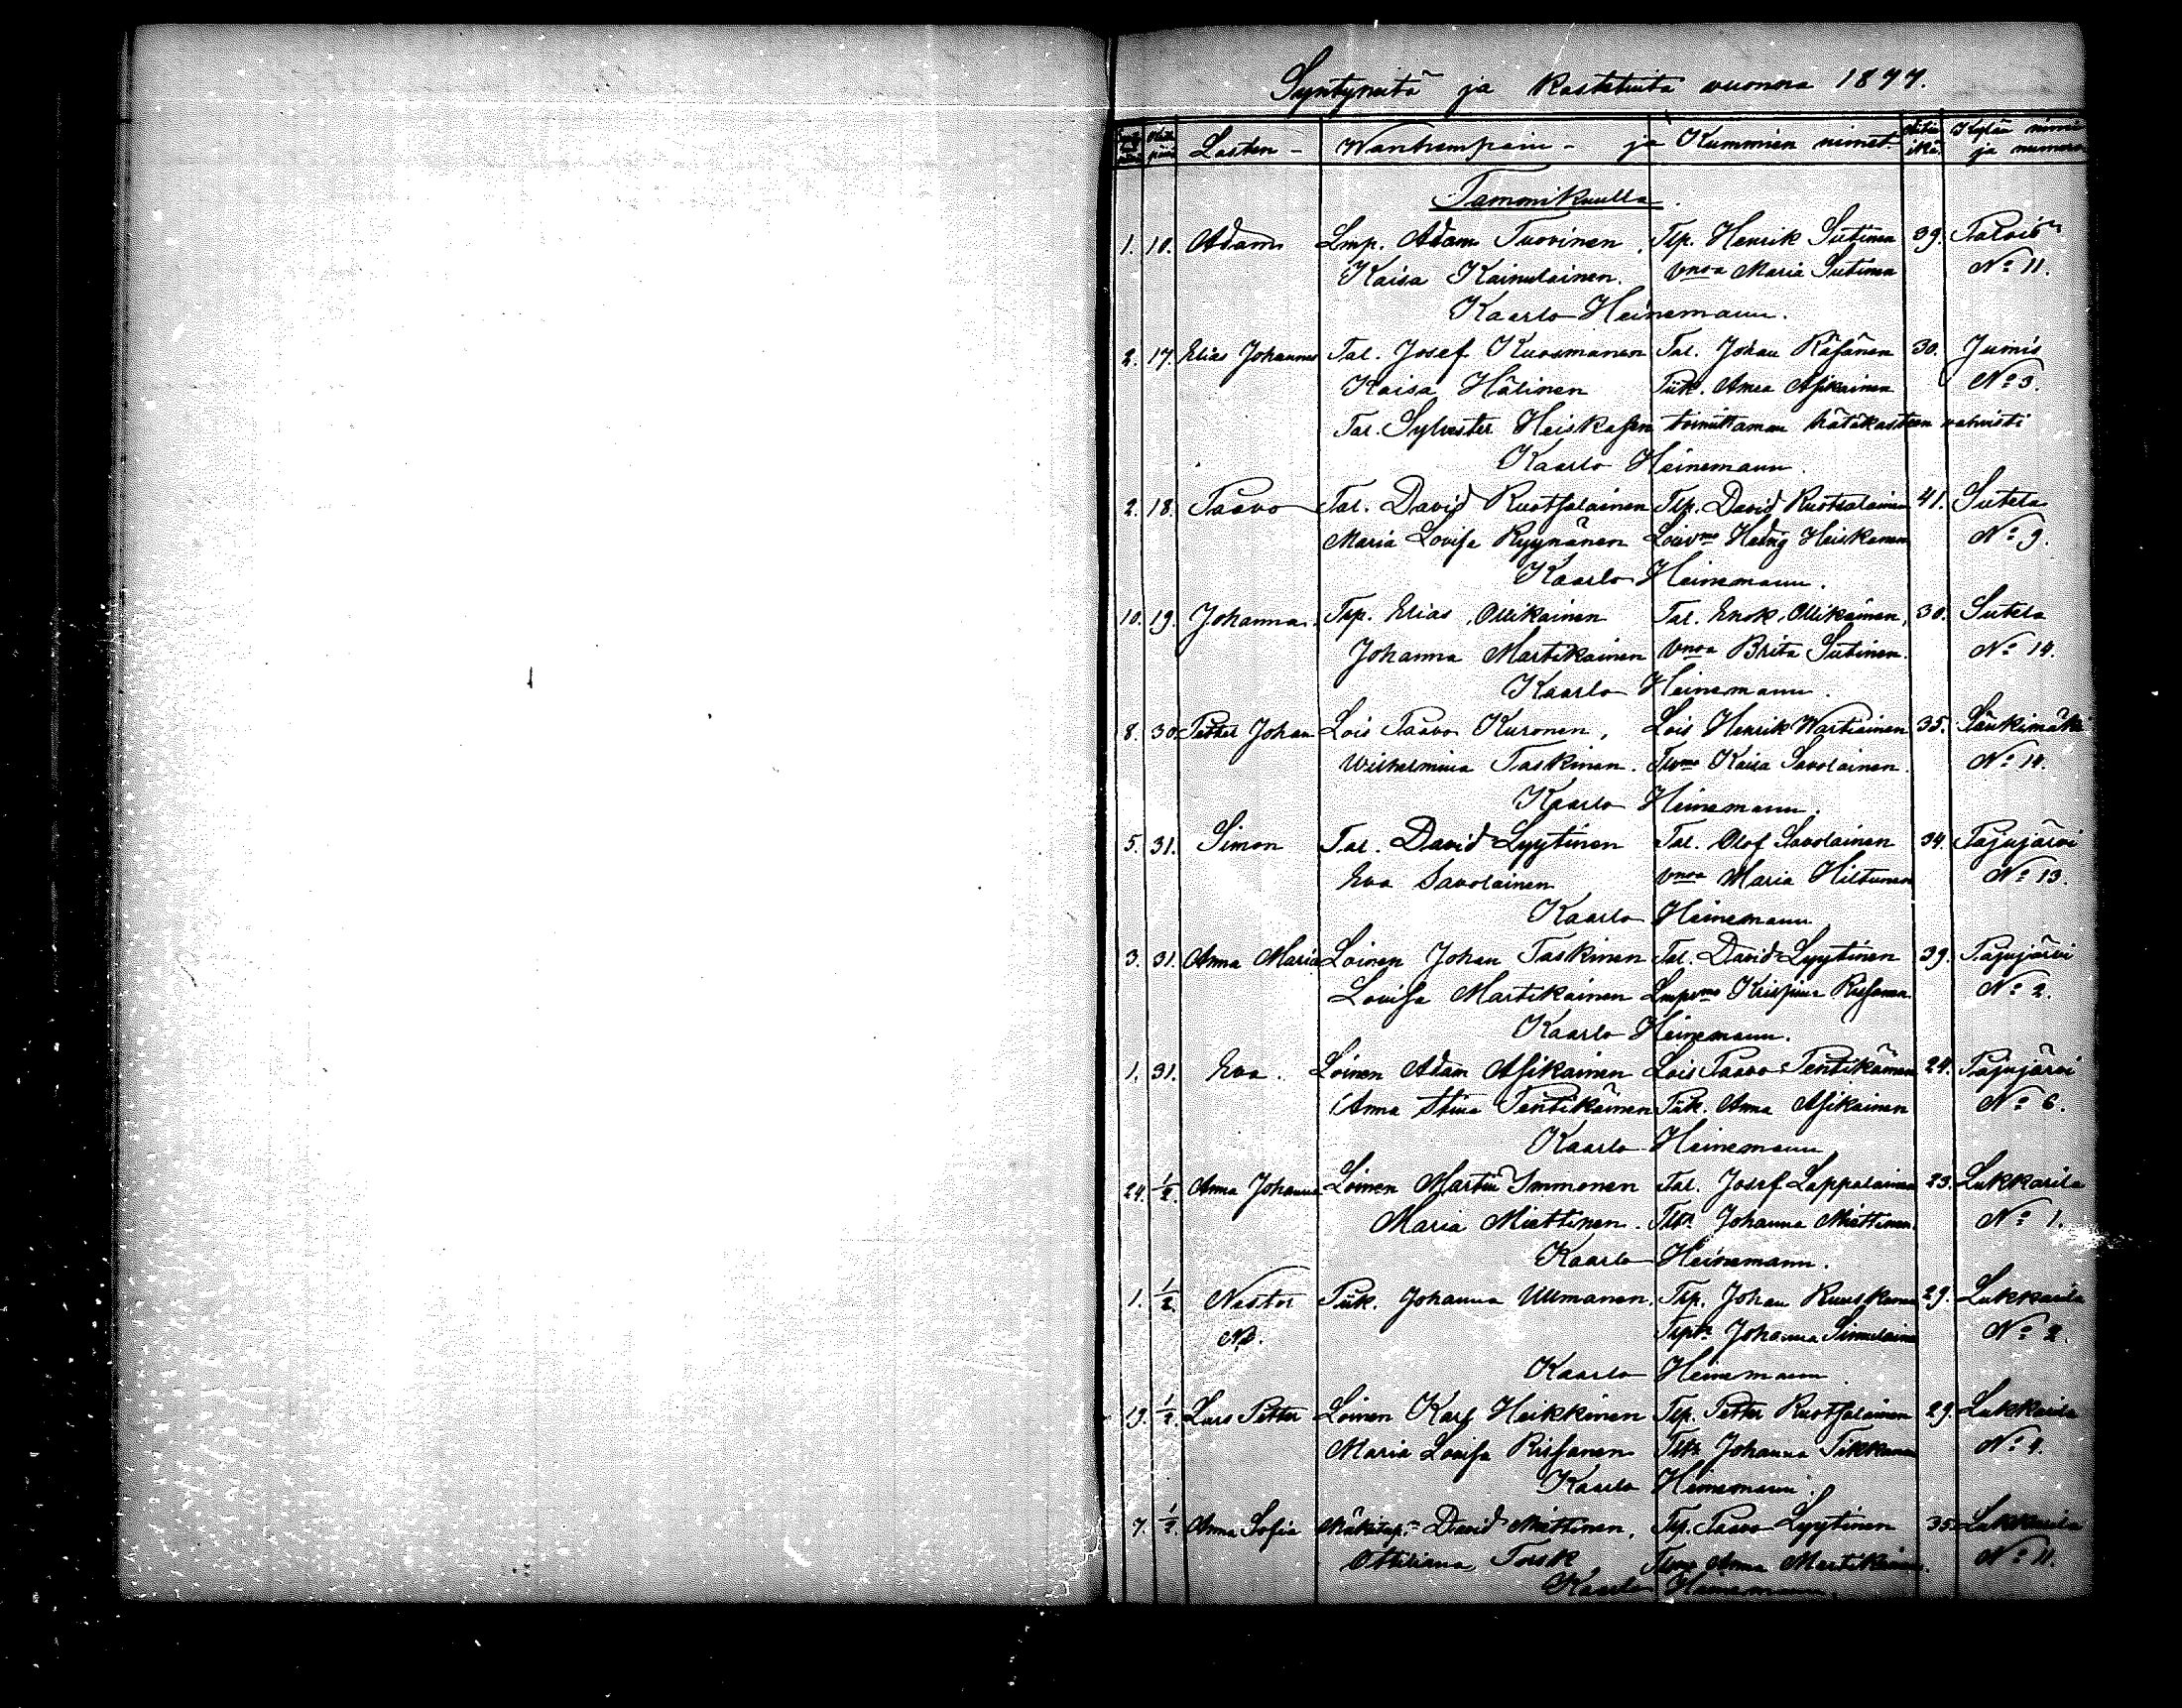 Syntyneitä ja Kastetuita vuonna 1877.
Lasten - Wanhempain - ja Kummien nimet Äitin ikä. Kylän nimi
ja numero
Tammikuulla.
1. 10. Adam Lmp. Adam Tuovinen, Tlp. Henrik Sutinen 39. Palois
Kaisa Kainulainen. vmoa Maria Sutinen No 11.
Kaarlo Heinemann.
2. 17. Elias Johannes Tal. Josef Kuosmanen Tal. Johan Räsänen 30. Jumis
Kaisa Hälinen Piik. Anna Asikainen No 3.
Tal. Sylvester Heiskasen toimittaman hätäkasteen vahvisti
Kaarlo Heinemann.
2. 18. Paavo Tal. David Ruotsalainen Tlp. David Ruotsalainen 41. Sutela
Maria Lovisa Ryynänen Loisvmo Hedvig Heiskanen No 9.
Kaarlo Heinemann.
10. 19. Johanna. Tlp. Elias Ollikainen Tal. Enok Ollikainen, 30. Sutela
Johanna Martikainen vmoa Brita Sutinen. No 14.
Kaarlo Heinemann.
8. 30. Petter Johan Lois Paavo Kuronen, Lois Henrik Wartiainen 35. Säukimäki
Wilhelmina Taskinen. Tlvmo Kaisa Savolainen. No 14.
Kaarlo Heinemann.
5. 31. Simon Tal. David Lyytinen Tal. Olof Savolainen 34. Pajujärvi
Eva Savolainen vmoa Maria Hiltunen No 13.
Kaarlo Heinemann
3. 31. Anna Maria Loinen Johan Taskinen Tal. David Lyytinen 39. Pajujärvi
Lovisa Martikainen Lmpvmo Krispina Rissanen No 2.
Kaarlo Heinemann.
1. 31. Eva. Loinen Adam Asikainen Lois Paavo Pentikäinen 24. Pajujärvi
Anna Stina Pentikäinen Piik. Anna Asikainen No 6.
Kaarlo Heinemann
24. 1/2. Anna Johanna Loinen Martin Immonen Tal. Josef Lappalainen 23. Lukkarila
Maria Miettinen. Tltr. Johanna Miettinen. No 1.
Kaarlo Heinemann.
1. 1/2. Nestor Piik. Johanna Ullmanen. Tlp. Johan Ruuskanen 29. Lukkarila
Johanna No 2.
Kaarlo Heinemann
19. 1/2. Lars Petter Loinen Karl Heikkinen Tlp. Petter Ruotsalainen 29. Lukkarila
Maria Lovisa Rissanen Tltr. Johanna Tikkanen No 4.
Kaarlo Heinemann.
7. 1/2. Anna Sofia Mäkitup. David Miettinen, Tlp. Paavo Lyytinen 35. Lukkarila
Ottiliana Torsk Anna Martikainen. No 11.
Kaarlo Heinemann.